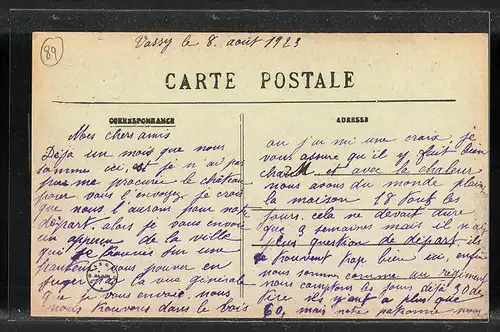 89
Vassy le 8. août 1923
CARTE POSTALE
CORRESPONDANCE
ADRESSE
Mes chers amis
Déjà un mois que nous
somme ici, et je n'ai pas
pue me procurer le château
pour vous l'envoyez je crois
que nous l'aurons pour notre
départ. alors je vous envoie
un apercu de la ville
qui se trouve sur une
hauteur vous pouvez en
juger par la vue générale
que je vous envoie nous
nous trouvons dans le bois
ou j'ai mi une croix je
vous assure qu'il y fait bien
chaud et avec la chaleur
nous avons du monde plein
la maison 18 tout les
jours. cela ne devait dure
que 3 semaines mais il n'ai
plus question de départ ils
se trouvent trop bien ici, enfin
nous somme comme au régiment
nous comptons les jours déjà 30 de
tire ils y en a plus que
60, mais notre patronne nous